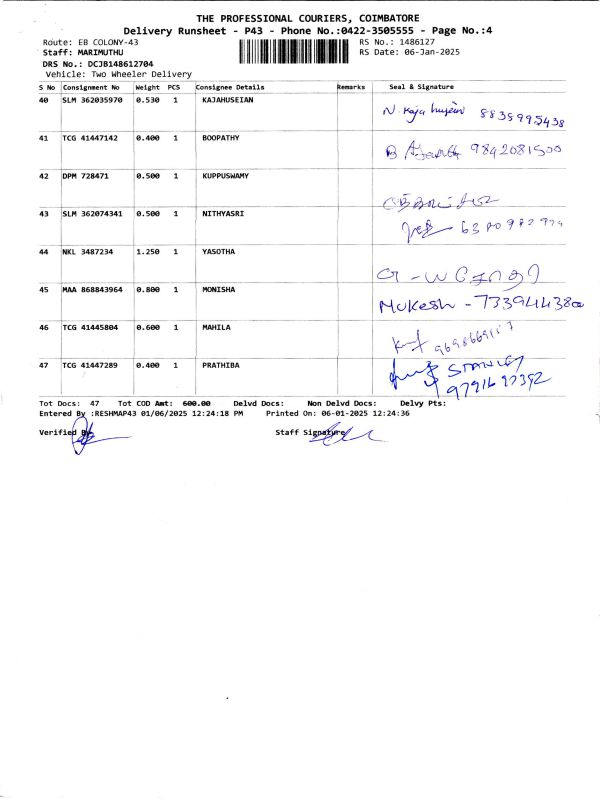 THE PROFESSIONAL COURIERS, COIMBATORE
Delivery Runsheet - P43 - Phone No.:0422-3505555 - Page No.:4
Route: EB COLONY-43 RS No.: 1486127
Staff: MARIMUTHU RS Date: 06-Jan-2025
DRS No.: DCJB148612704
Vehicle: Two Wheeler Delivery
S No Consignment No Weight PCS Consignee Details Remarks Seal & Signature
40 SLM 362035970 0.530 1 KAJAHUSEIAN
N. Kaja hujein 8835995438
41 TCG 41447142 0.400 1 BOOPATHY
B 9842081500
42 DPM 728471 0.500 1 KUPPUSWAMY
43 SLM 362074341 0.500 1 NITHYASRI
44 NKL 3487234 1.250 1 YASOTHA
45 MAA 868843964 0.800 1 MONISHA
Mukesh -
46 TCG 41445804 0.600 1 MAHILA
47 TCG 41447289 0.400 1 PRATHIBA
STANLEY
Tot Docs: 47 Tot COD Amt: 600.00 Delvd Docs: Non Delvd Docs: Delvy Pts:
Entered By :RESHMAP43 01/06/2025 12:24:18 PM Printed On: 06-01-2025 12:24:36
Verified By Staff Signature